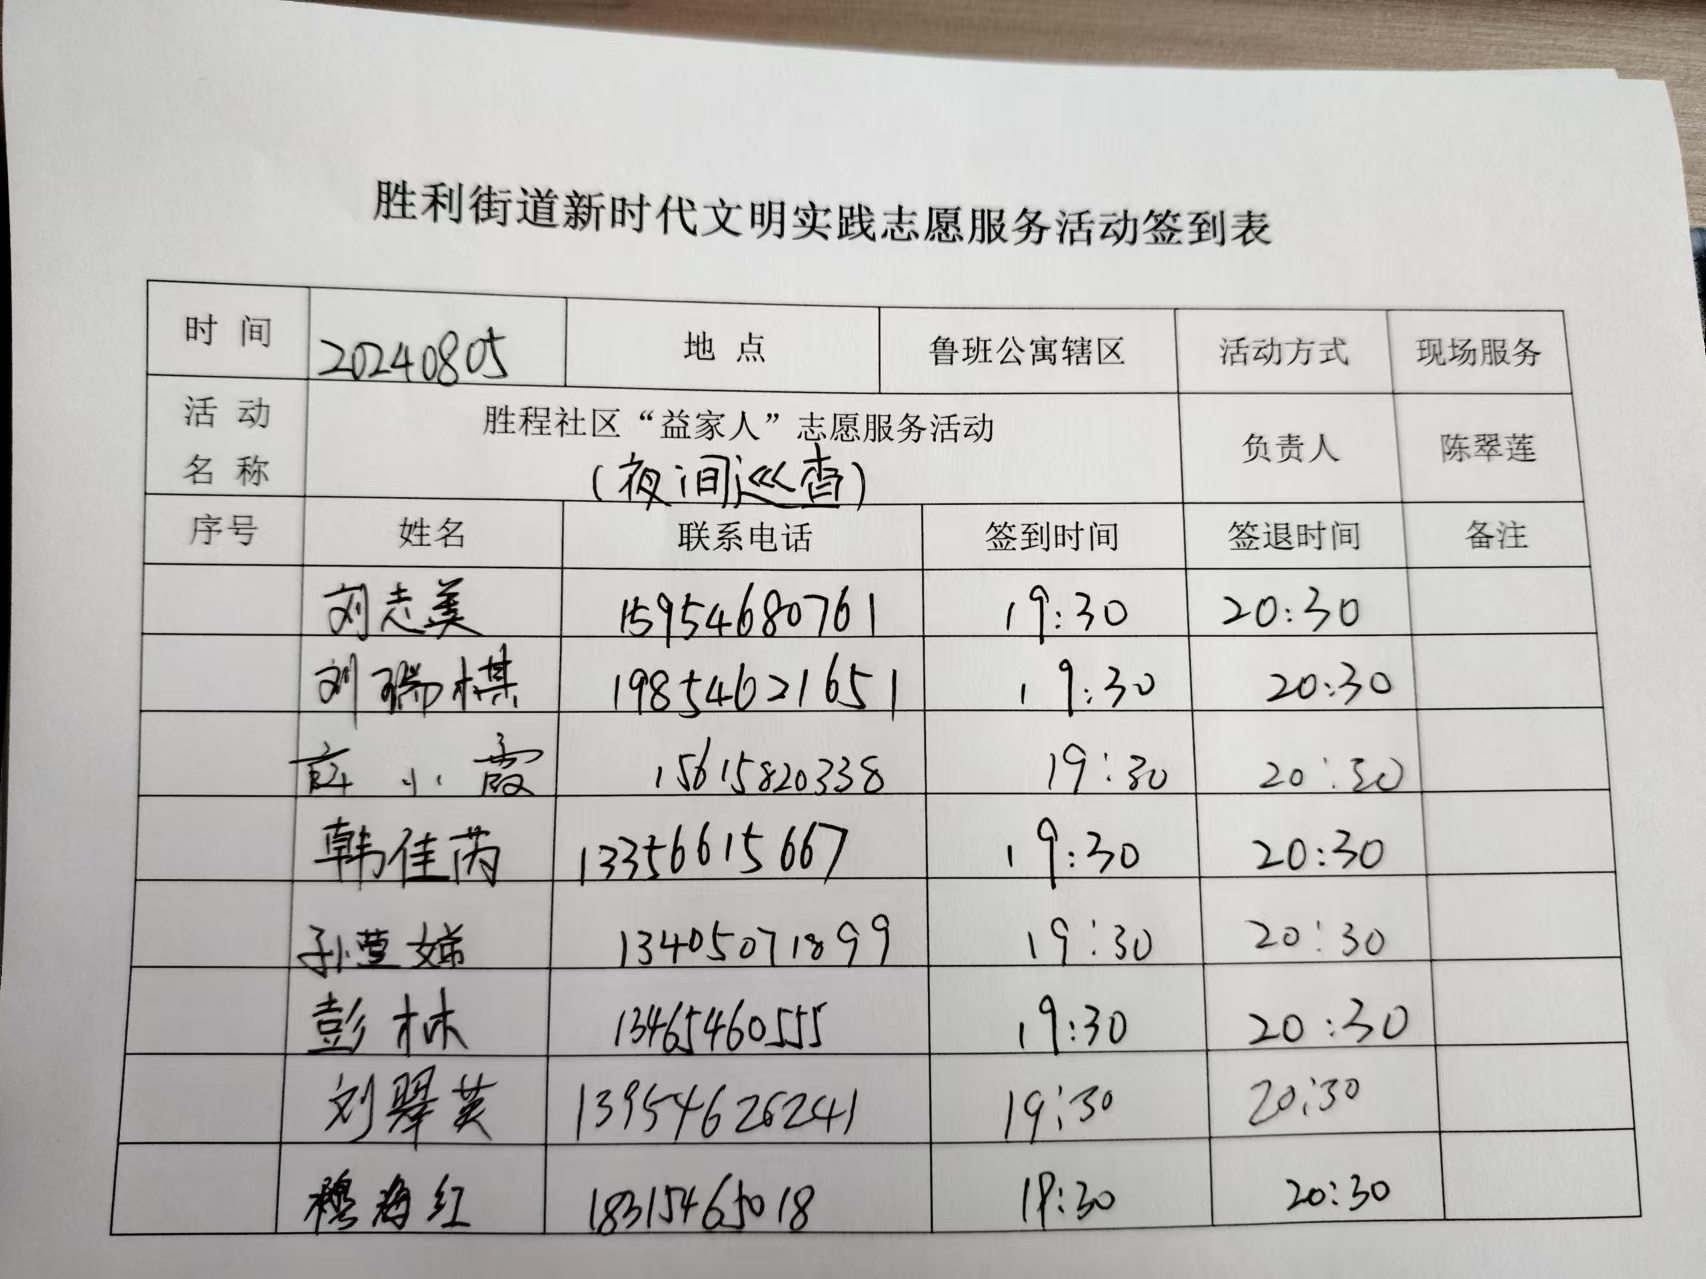 胜利街道新时代文明实践志愿服务活动签到表
时 间 20240805 地 点 鲁班公寓辖区 活动方式 现场服务
活 动 名 称 胜程社区“益家人”志愿服务活动 负责人 陈翠莲
(夜间巡查)
序号 姓名 联系电话 签到时间 签退时间 备注
刘志美 15954680761 19:30 20:30
刘瑞棋 19854621651 19:30 20:30
薛小霞 15615820338 19:30 20:30
韩佳芮 13356615667 19:30 20:30
孙萱娣 13405071899 19:30 20:30
彭林 13465460555 19:30 20:30
刘翠英 13954626241 19:30 20:30
穆海红 18315465018 19:30 20:30